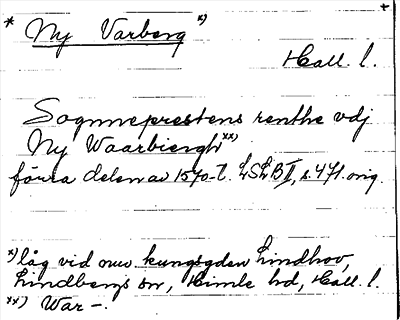 * Ny Varberg x)
+
Hall. l.
Sognneprestens renthe vdj
Ny Waarbiergh xx)
förra delen av 1570-t. LSLB II, s. 471. orig.
x) låg vid nuv. kungsgden Lindhov,
Lindbergs sn, Himle hd, Hall. l.
xx) War-.